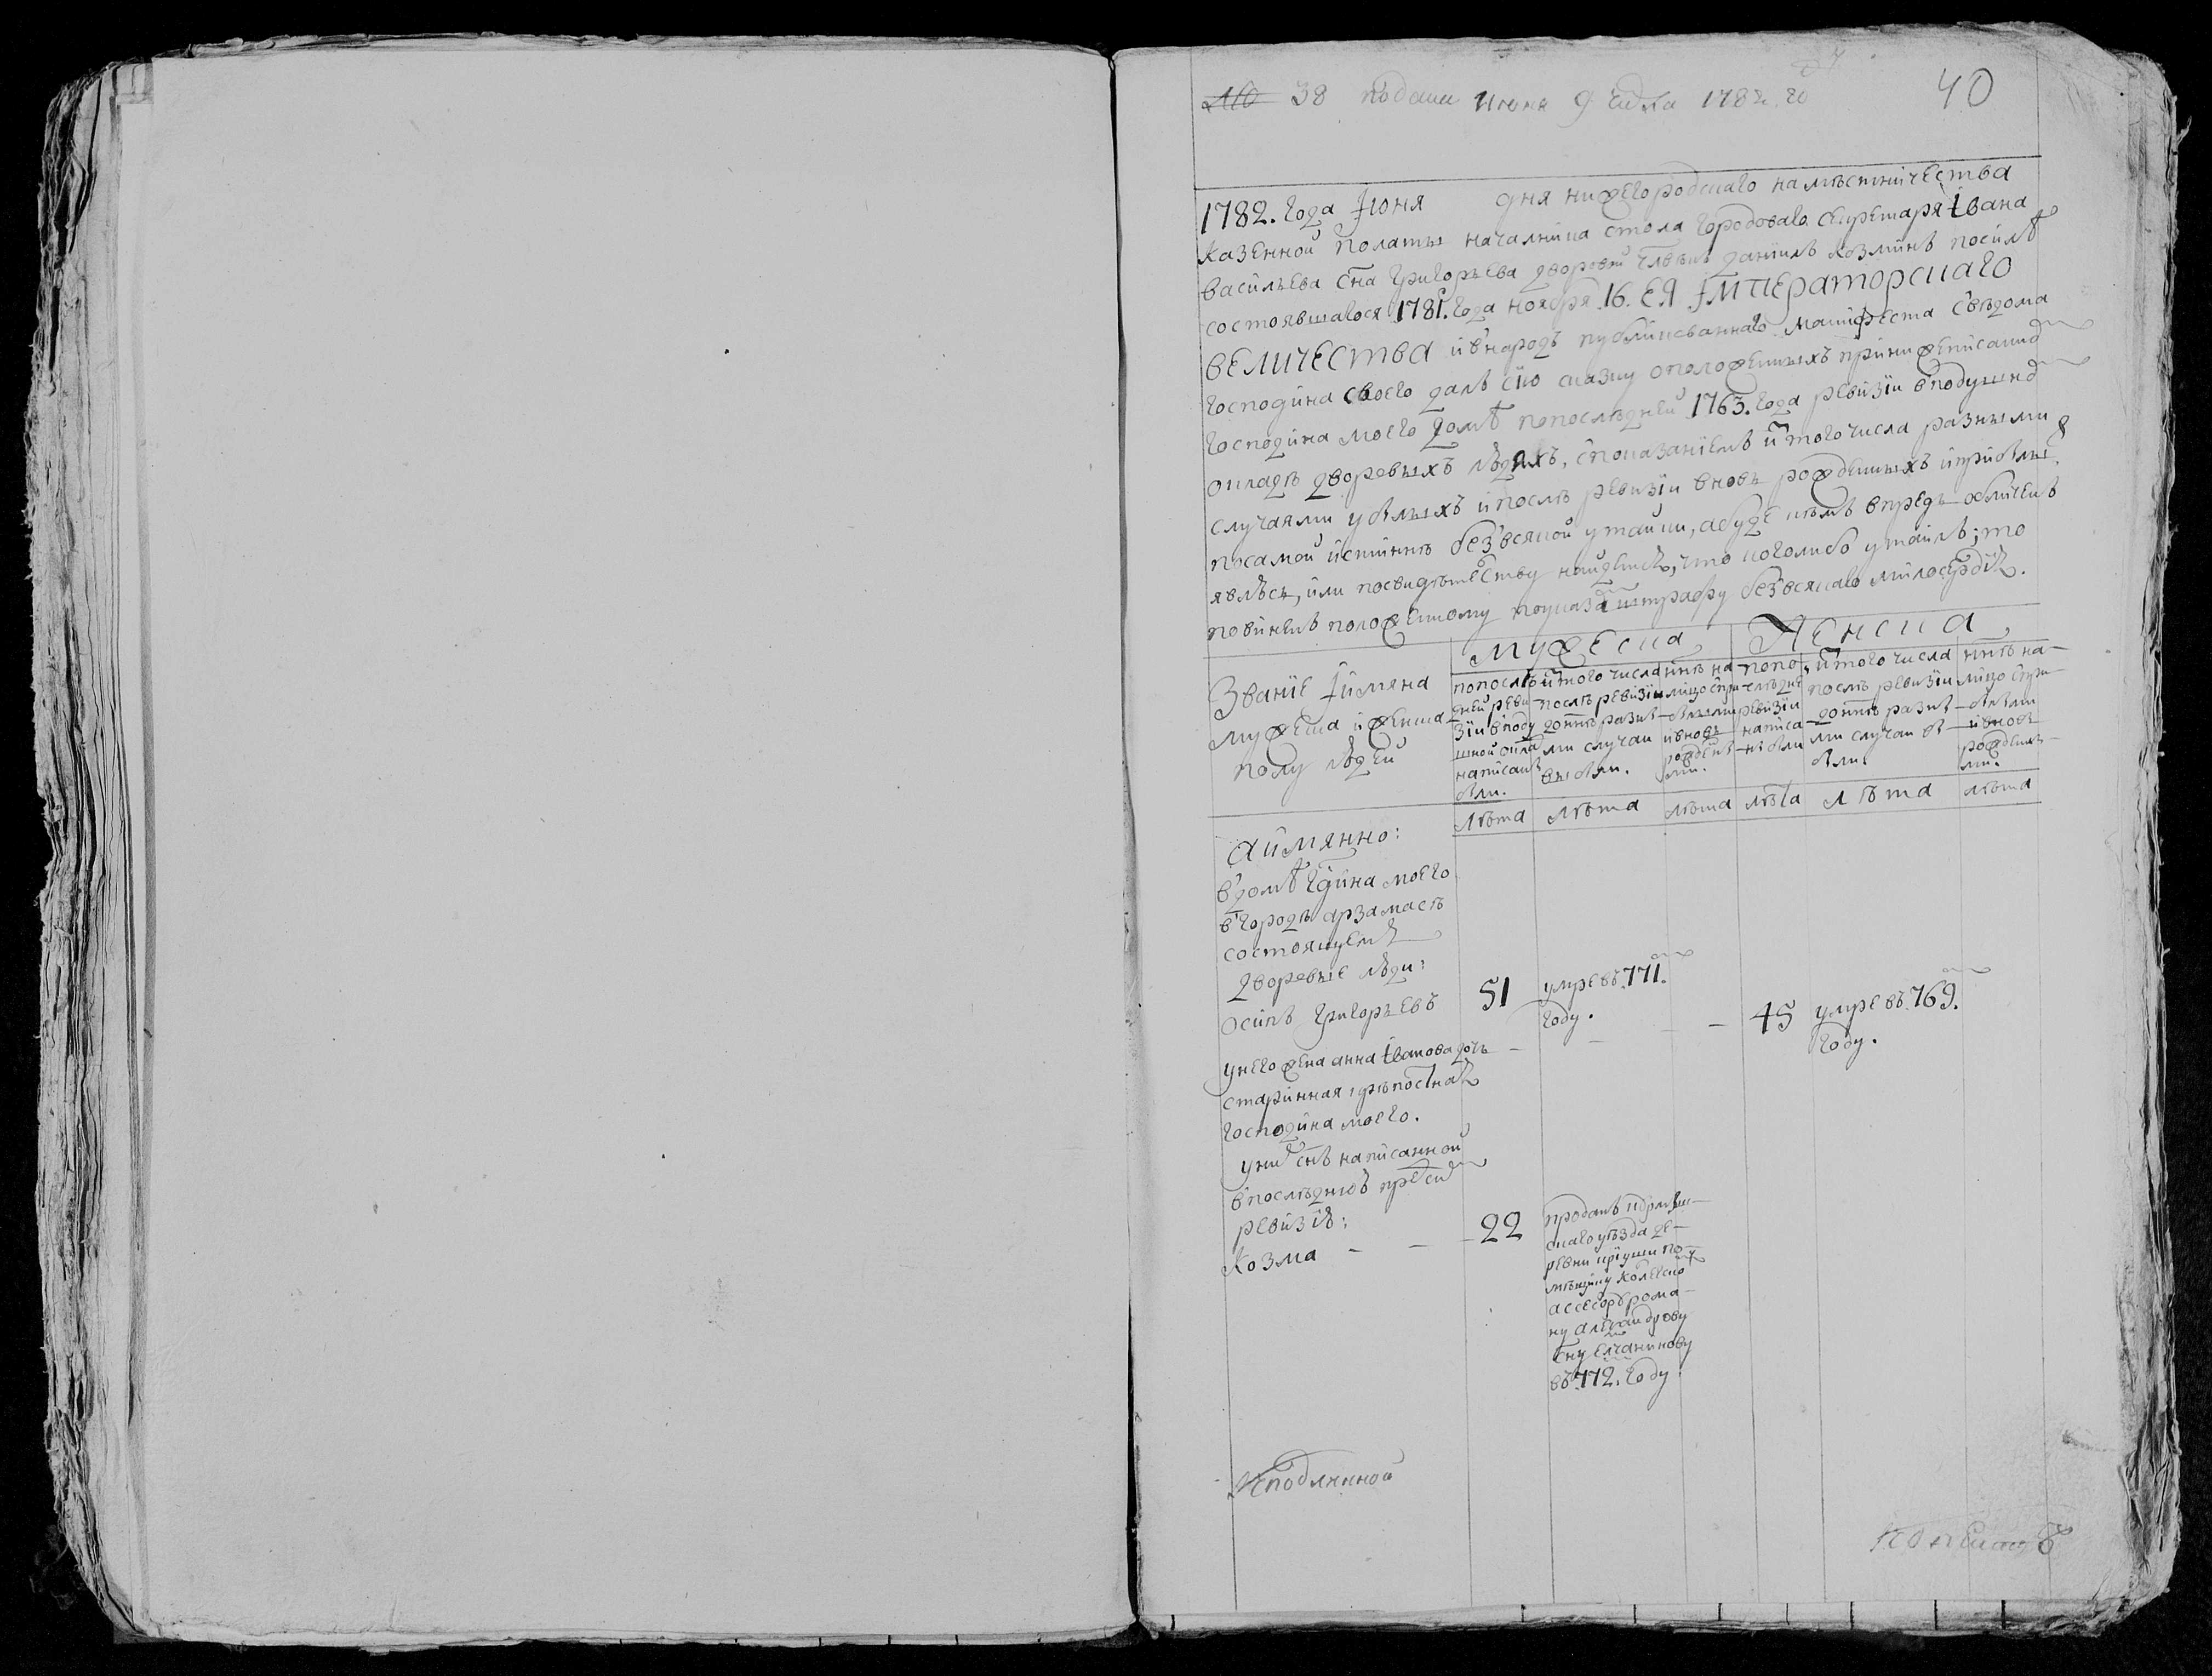 № 38 подана июня 9 числа 1782 го
40
1782. года Iюня дня нижегородскаго намѣстничества
казенной полаты началника стола городоваго секретаря Iвана
васильева сна григорьева дворовой члвкъ данилъ козминъ посилѣ
состоявшагося 1781. года ноября 16. ЕЯ IМПЕРАТОРСКАГО
ВЕЛИЧЕСТВА ивнародъ публикованнаго манифеста свѣдома
господина своего далъ сию сказку оположенныхъ принижеписанно
господина моего домѣ попослѣдней 1763. года ревизiи вподушно
окладѣ дворовыхъ людяхъ, споказанiемъ истого числа разными
случаями убылыхъ ипослѣ ревизiи вновь рожденныхъ иприбылы
посамой истиннѣ безвсякой утайки, абуде кѣмъ впредь обличенъ
явлюсь, или посвидѣтелству найдется, что коголибо утаилъ; то
повиненъ положенному поуказо штрафу безвсякаго милосердiя.
мужеска Женска
Званiе Iимяна
мужеска иженска
полу людей
попослѣ
дней реви
зiи вподу
шной окла
написаны
были.
истого числа
послѣ ревизiи
доннѣ разны
ми случаи
выбыли.
ннѣ на
лицо спри
былыми
ивновь
рожденны
ми.
попо
слѣдне
ревизiи
написа
ны были
истого числа
послѣ ревизiи
доннѣ разны
ми случаи вы
были.
ннѣ на
лицо спри
былыми
ивновь
рожденны
ми.
лѣта лѣта лѣта лѣта лѣта лѣта
аимянно:
вдомѣ гдина моего
вгородѣ арзамасѣ
состоящемъ
дворовые люди:
Осипъ григорьевъ 51 умре въ.771.
году.
унего жена анна Iванова дочь – – – – 45 умре въ.769.
году.
старинная крѣпостная
господина моего.
уних снъ написанной
впослѣднюю пред сим
ревизiю:
Козма – – – 22 проданъ
скаго уѣзда де
ревни по
мѣщику колежско
ассесору рома
ну александрову
сну елчанинову
въ.772. году.
Кподлинной